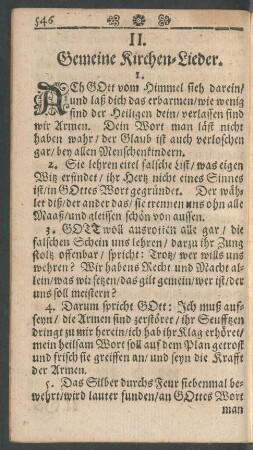 546
II.
Gemeine Kirchen-Lieder.
1.
ACh GOtt vom Himmel sieh darein/
und laß dich das erbarmen/wie wenig
sind der Heiligen dein/verlassen sind
wir Armen. Dein Wort man läst nicht
haben wahr/ der Glaub ist auch verloschen
gar/bey allen Menschenkindern.
2. Sie lehren eitel falsche List/ was eigen
Witz erfindet / ihr Hertz nicht eines Sinnes
ist/in GOttes Wort gegründet. Der wäh-
let diß/der ander das/sie trennen uns ohn alle
Maaß/und gleissen schön von aussen.
3. GOTT woll ausrotten alle gar / die
falschen Schein uns lehren/ darzu ihr Zung
stoltz offenbar / spricht: Trotz/ wer wills uns
wehren? Wir habens Recht und Macht al-
lein/was wir setzen/das gilt gemein/wer ist/der
uns soll meistern?
4. Darum spricht GOtt: Ich muß auf-
seyn/ die Armen sind zerstöret/ ihr Seufftzen
dringt zu mir herein/ich hab ihr Klag erhöret/
mein heilsam Wort soll auf dem Plan getrost
und frisch sie greiffen an/ und seyn die Krafft
der Armen.
5. Das Silber durchs Feur siebenmal be-
wehrt/wird lauter funden/an GOttes Wort
man